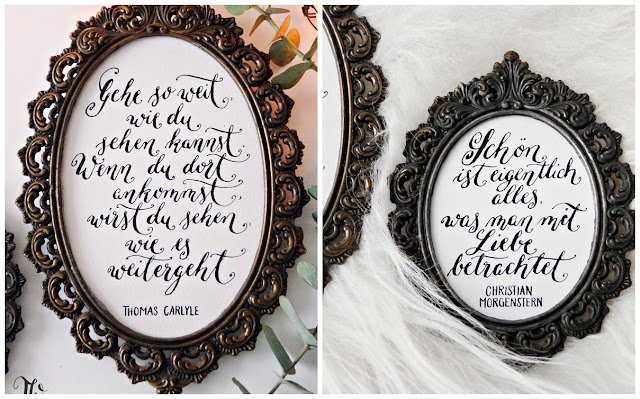 Gehe so weit,
wie du
sehen kannst.
Wenn du dort
ankommst,
wirst du sehen,
wie es
weitergeht
THOMAS CARLYLE
Schön
ist eigentlich
alles,
was man mit
Liebe
betrachtet
CHRISTIAN
MORGENSTERN